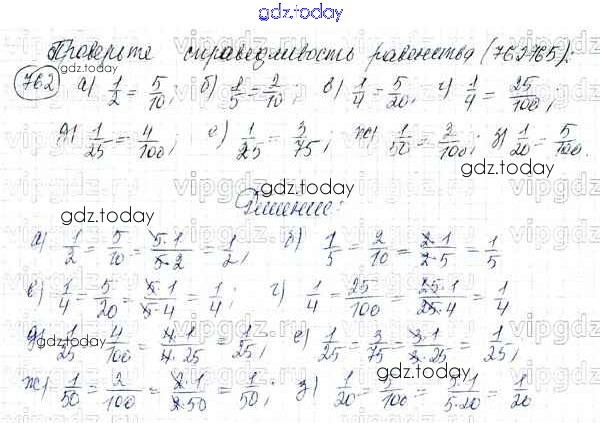 gdz.today
Проверьте справедливость равенства (762-765):
762 а) 1/2 = 5/10; б) 1/5 = 2/10; в) 1/4 = 5/20; г) 1/4 = 25/100;
gdz.today
д) 1/25 = 4/100; е) 1/25 = 3/75; ж) 1/50 = 2/100; з) 1/20 = 5/100.
Решение:
gdz.today
а) 1/2 = 5/10 = 5·1/5·2 = 1/2; б) 1/5 = 2/10 = 2·1/2·5 = 1/5
в) 1/4 = 5/20 = 5·1/5·4 = 1/4; г) 1/4 = 25/100 = 25·1/25·4 = 1/4
д) 1/25 = 4/100 = 4·1/4·25 = 1/25; е) 1/25 = 3/75 = 3·1/3·25 = 1/25;
gdz.today
ж) 1/50 = 2/100 = 2·1/2·50 = 1/50; з) 1/20 = 5/100 = 5·1/5·20 = 1/20
gdz.today